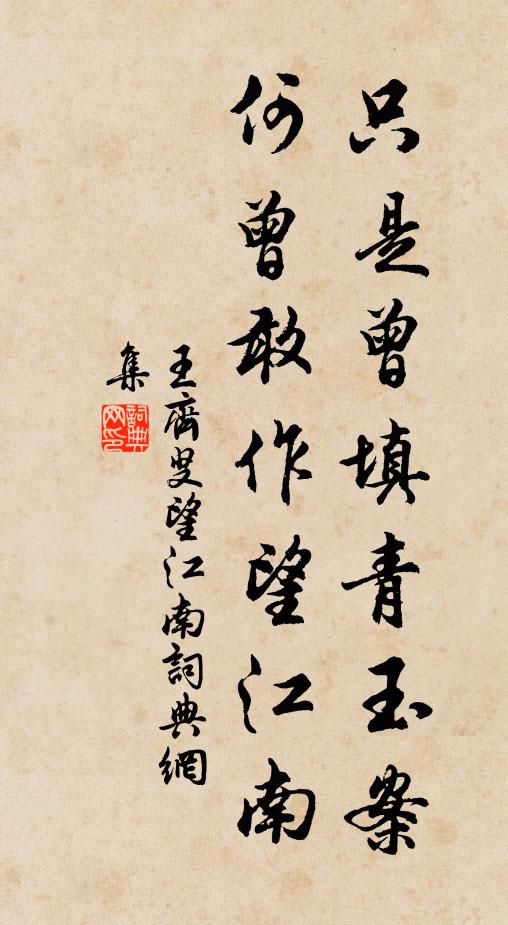 只是曾填青玉案
何曾敢作望江南
王齊叟望江南詞典網
集
詞典
网印